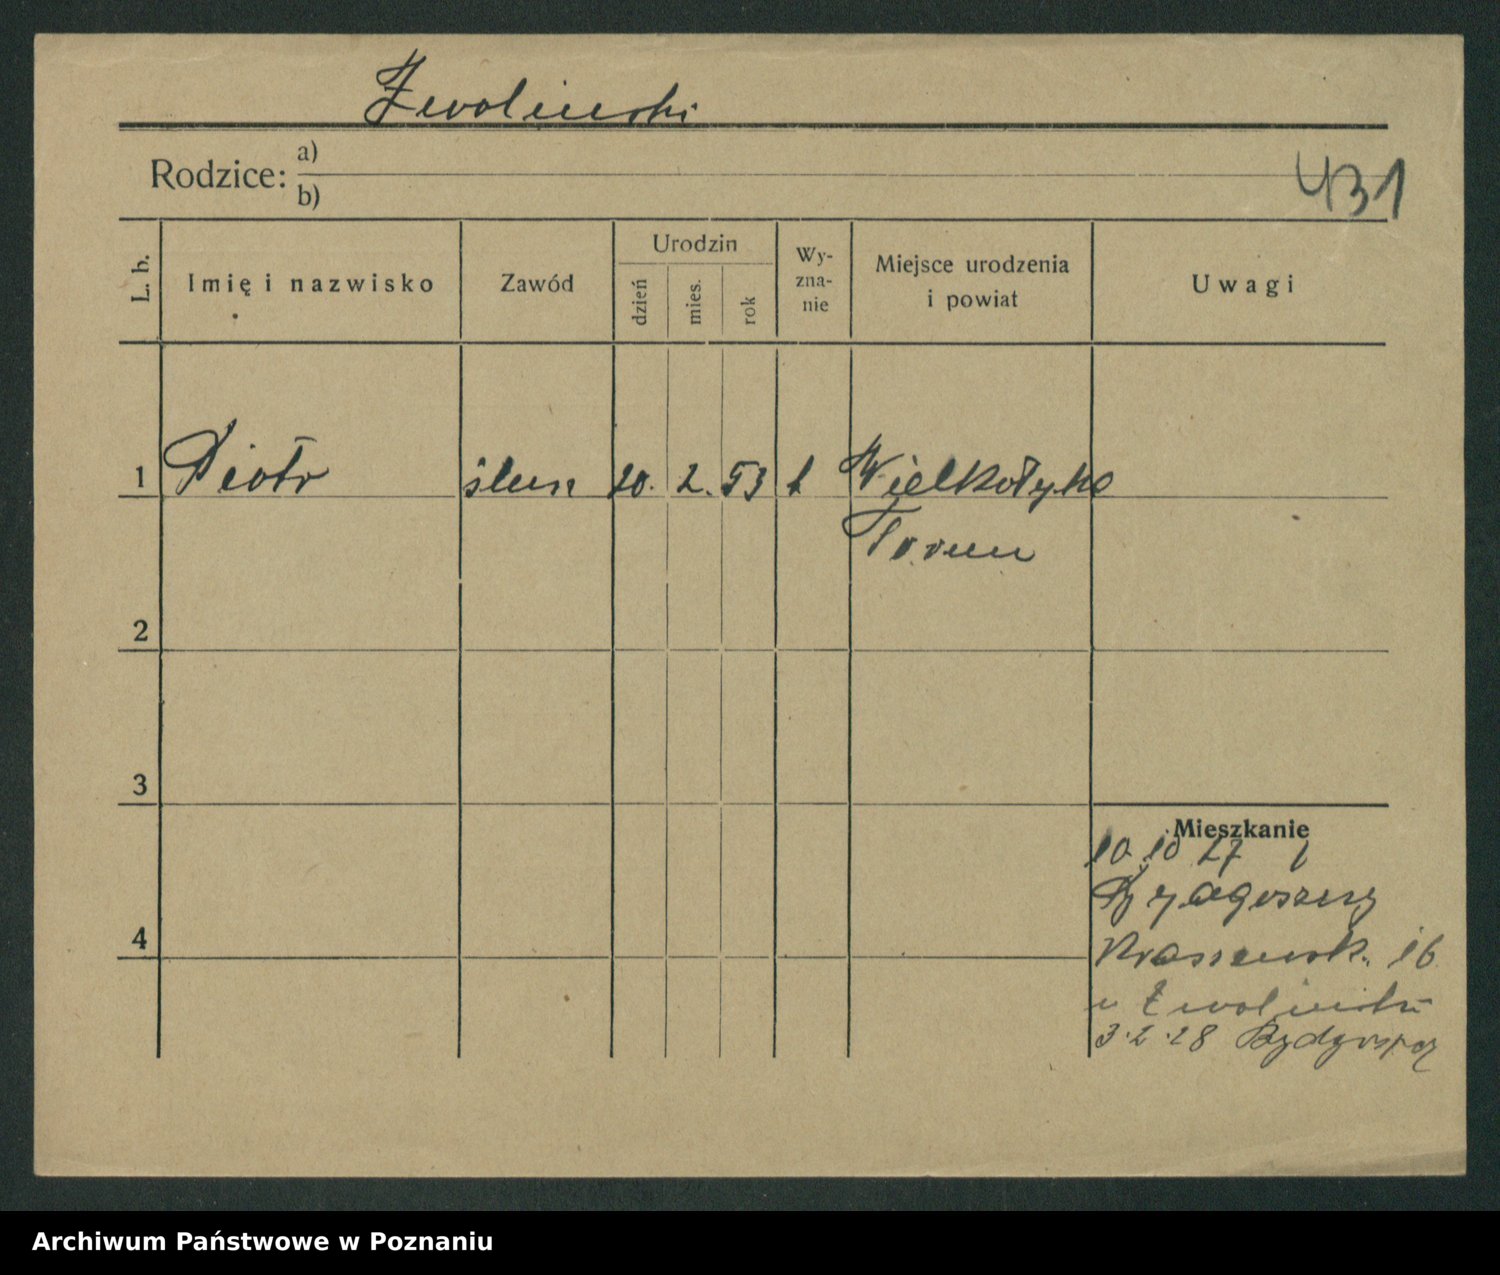 Zwolinski
Rodzice: a)
b)
431
L. b. Imię i nazwisko Zawód Urodzin dzień mies. rok Wyznanie Miejsce urodzenia i powiat Uwagi
1 Piotr ślus 20. 2. 53 k Wielkołyka
Torun
2
3
Mieszkanie
10 10 27
Bydgoszcz
4
Kraszewsk. 16
u Zwolinski
3.2.28 Bydgoszcz
Archiwum Państwowe w Poznaniu